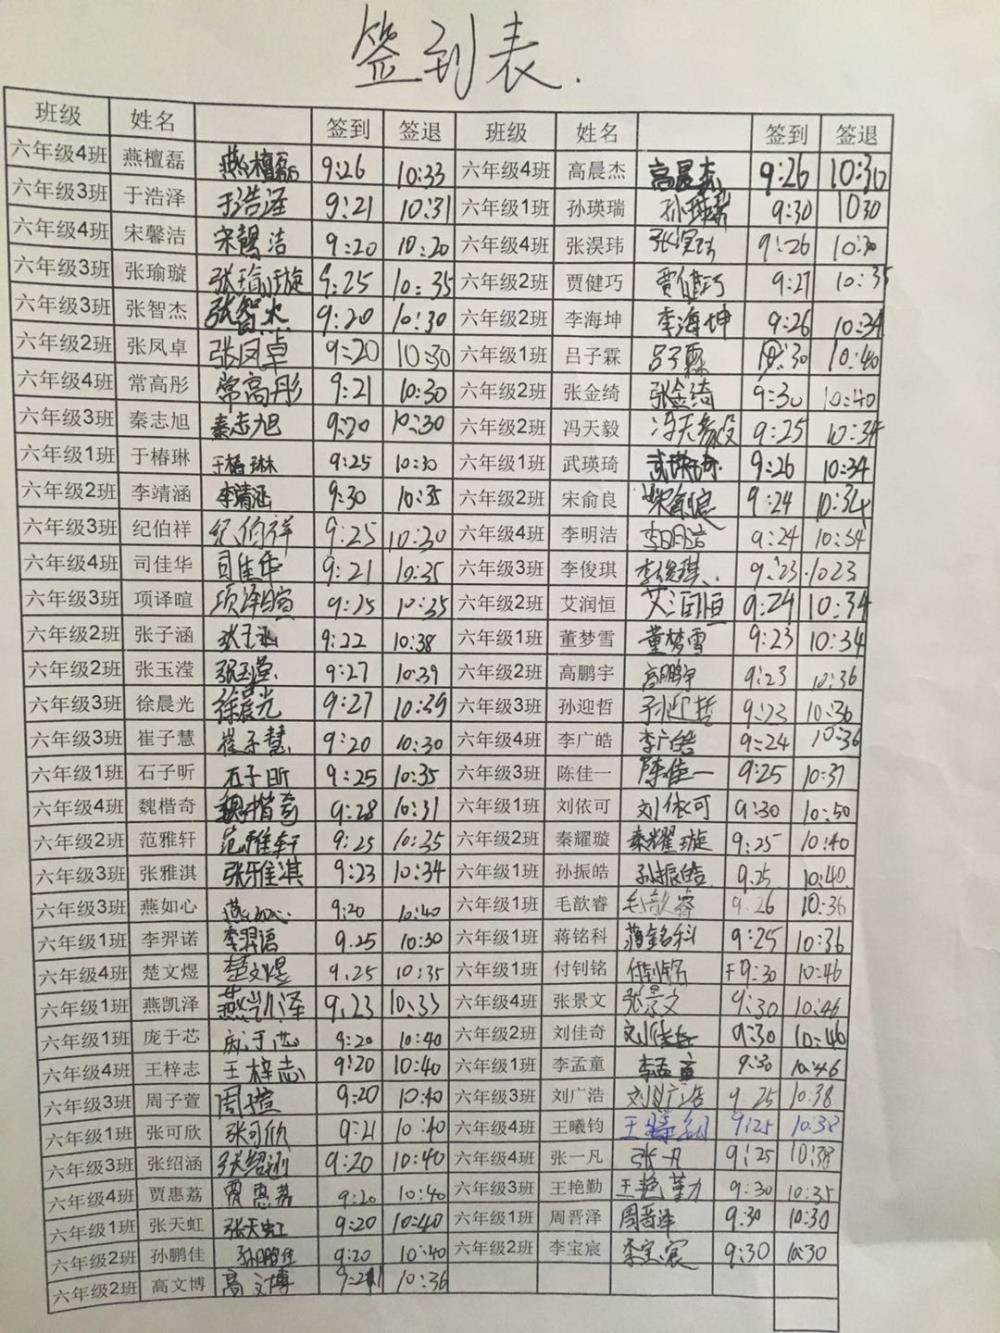 签到表.
班级 姓名 签到 签退 班级 姓名 签到 签退
六年级4班 燕檀磊 燕檀磊 9:26 10:33 六年级4班 高晨杰 高晨杰 9:26 10:36
六年级3班 于浩泽 于浩泽 9:21 10:31 六年级1班 孙瑛瑞 孙瑛瑞 9:30 1030
六年级4班 宋馨洁 宋馨洁 9:20 10:20 六年级4班 张淏玮 张淏玮 9:26 10:30
六年级3班 张瑜璇 张瑜璇 9:25 10:35 六年级2班 贾健巧 贾健巧 9:27 10:35
六年级3班 张智杰 张智杰 9:20 10:30 六年级2班 李海坤 李海坤 9:26 10:34
六年级2班 张凤卓 张凤卓 9:20 10:30 六年级1班 吕子霖 吕子霖 :30 10:40
六年级4班 常高彤 常高彤 9:21 10:30 六年级2班 张金绮 张金绮 9:30 10:40
六年级3班 秦志旭 秦志旭 9:20 10:30 六年级2班 冯天毅 冯天毅 9:25 10:34
六年级1班 于椿琳 于椿琳 9:25 10:30 六年级1班 武瑛琦 武瑛琦 9:26 10:34
六年级2班 李靖涵 李靖涵 9:30 10:35 六年级2班 宋俞良 宋俞良 9:24 10:34
六年级3班 纪伯祥 纪伯祥 9:25 10:30 六年级4班 李明洁 李明洁 9:24 10:34
六年级4班 司佳华 司佳华 9:21 10:35 六年级3班 李俊琪 李俊琪 9:23 1023
六年级3班 项译暄 项译暄 9:25 10:35 六年级2班 艾润恒 艾润恒 9:24 10:34
六年级2班 张子涵 张子涵 9:22 10:38 六年级1班 董梦雪 董梦雪 9:23 10:34
六年级2班 张玉滢 张玉莹 9:27 10:39 六年级2班 高鹏宇 高鹏宇 9:23 10:36
六年级3班 徐晨光 徐晨光 9:27 10:39 六年级3班 孙迎哲 孙迎哲 9:23 10:36
六年级3班 崔子慧 崔子慧 9:20 10:30 六年级4班 李广皓 李广皓 9:24 10:36
六年级1班 石子昕 石子昕 9:25 10:35 六年级3班 陈佳一 陈佳一 9:25 10:37
六年级4班 魏楷奇 魏楷奇 9:28 10:31 六年级1班 刘依可 刘依可 9:30 10:50
六年级2班 范雅轩 范雅轩 9:25 10:35 六年级2班 秦耀璇 秦耀璇 9:25 10:40
六年级3班 张雅淇 张雅淇 9:23 10:34 六年级1班 孙振皓 孙振皓 9.25 10:40
六年级3班 燕如心 燕如心 9:20 10:40 六年级1班 毛歆睿 毛歆睿 9.26 10:36
六年级1班 李羿诺 李羿诺 9.25 10:30 六年级1班 蒋铭科 蒋铭科 9:25 10:36
六年级4班 楚文煜 楚文煜 9.25 10:35 六年级1班 付钊铭 付钊铭 9:30 10:46
六年级1班 燕凯泽 燕凯泽 9.23 10:33 六年级4班 张景文 张景文 9:30 10:46
六年级1班 庞于芯 庞于芯 9:20 10:40 六年级2班 刘佳奇 刘佳奇 9:30 10:40
六年级4班 王梓志 王梓志 9:20 10:40 六年级1班 李孟童 李孟童 9:30 10:46
六年级3班 周子萱 9:20 10:40 六年级3班 刘广浩 刘广浩 9.25 10:38
六年级1班 张可欣 张可欣 9:21 10:40 六年级4班 王曦钧 王曦钧 9:25 10:38
六年级3班 张绍涵 张绍涵 9:20 10:40 六年级4班 张一凡 张一凡 9:25 10:38
六年级4班 贾惠荔 贾惠荔 9:20 10:40 六年级3班 王艳勤 王艳勤 9:30 10:35
六年级1班 张天虹 张天虹 9:20 10:40 六年级1班 周晋泽 周晋泽 9:30 10:30
六年级2班 孙鹏佳 孙鹏佳 9:20 10:40 六年级2班 李宝宸 李宝宸 9:30 10:30
六年级2班 高文博 高文博 10:36